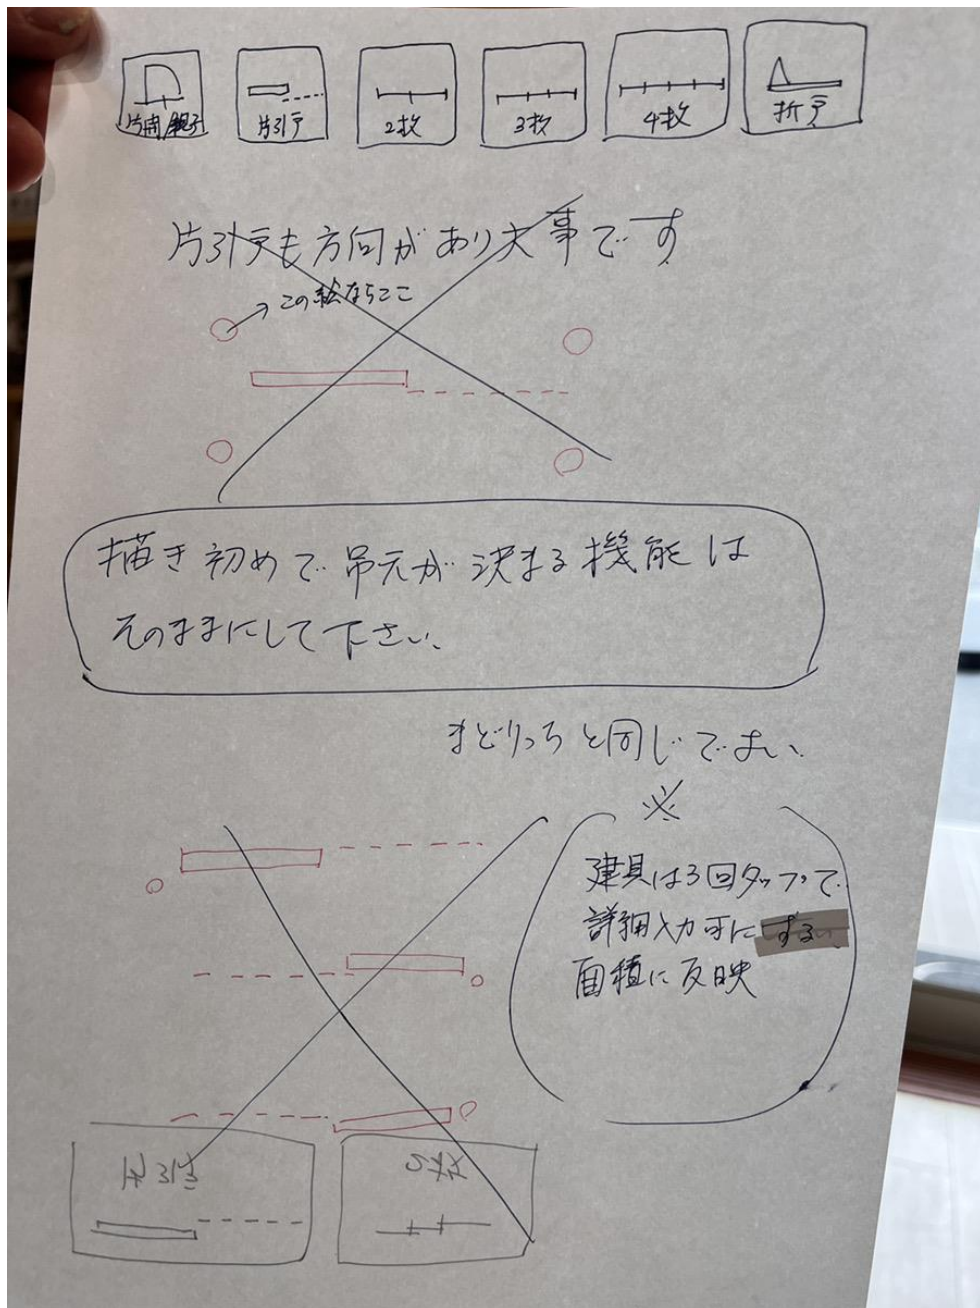 片開/親子
片引戸
2枚
3枚
4枚
折戸
片引戸も方向があり大事です
この絵ならここ
描き初めで吊元が決まる機能は
そのままにして下さい。
まどりっちと同じでよい、
※
建具は3回タップで
詳細入力可にする
面積に反映
片引
2枚